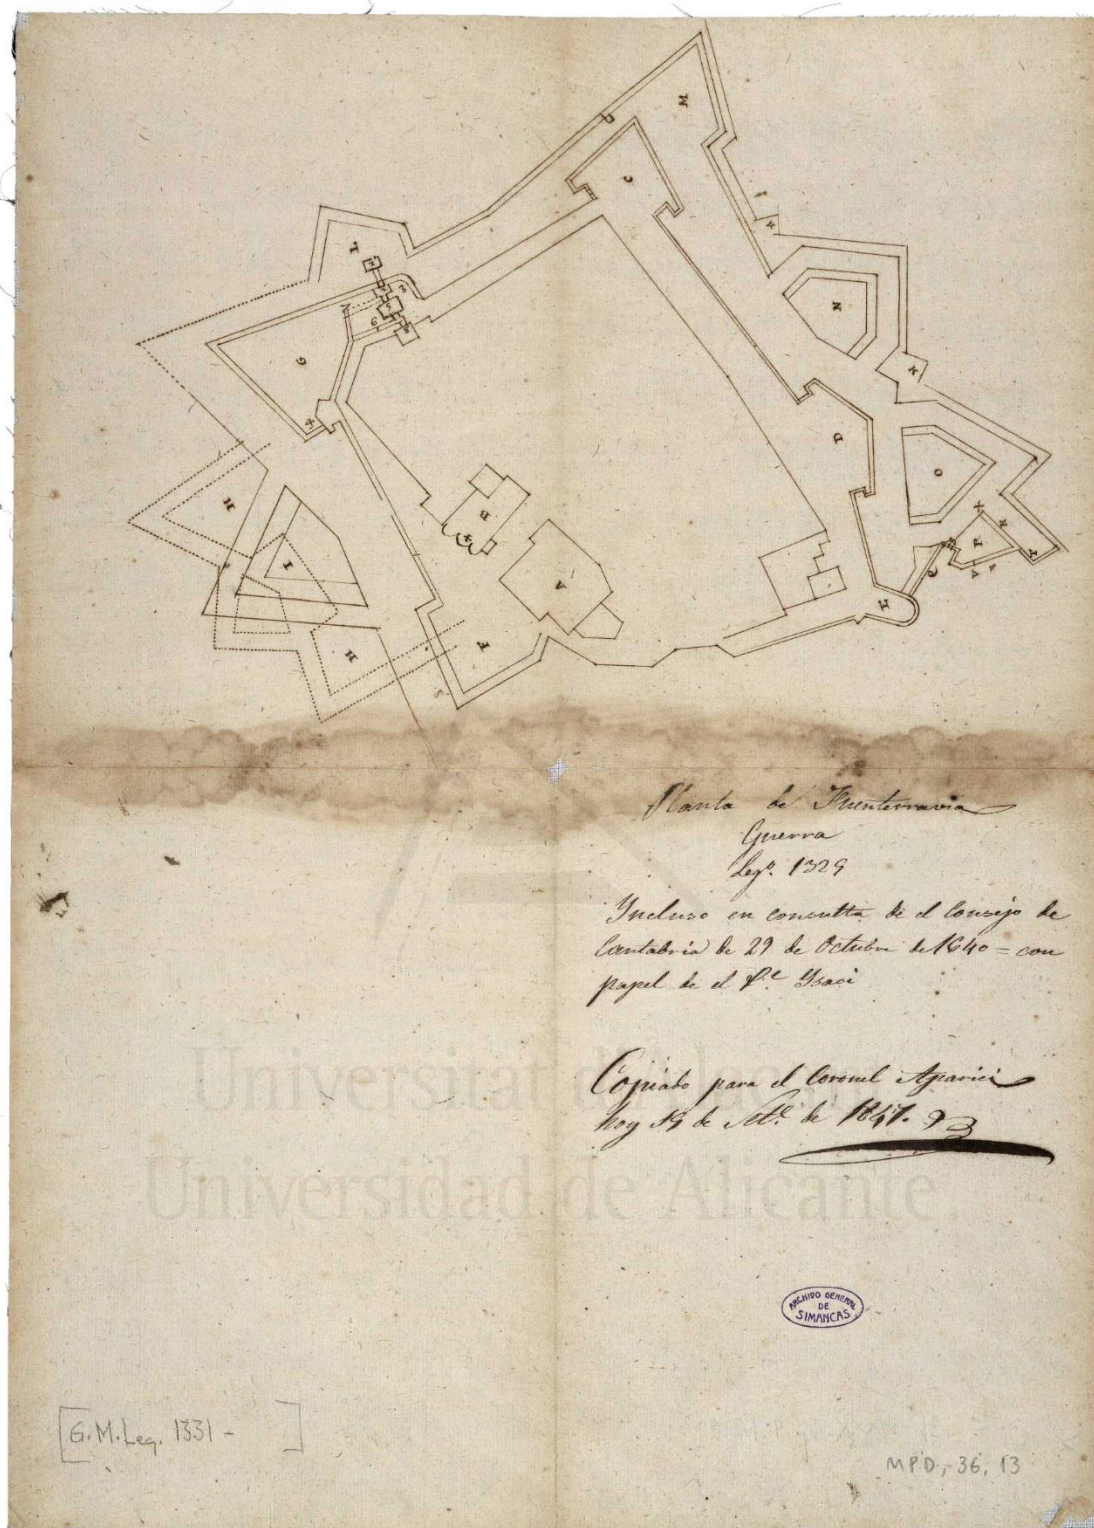 M
C
N
K
D
O
P
H
L
G
H
I
H
B
A
F
Planta de Fuenterravia
Guerra
Lego. 1329
Incluso en consulta de el Consejo de
Cantabria de 29 de Octubre de 1640 = con
papel de el Pe. Ysaci
Copiado para el Coronel Aparici
hoy de Sete. de 1847.
Universitat d'Alacant
Universidad de Alicante
ARCHIVO GENERAL
DE
SIMANCAS
[G.M. Leg. 1331 - ]
MPD, - 36, 13